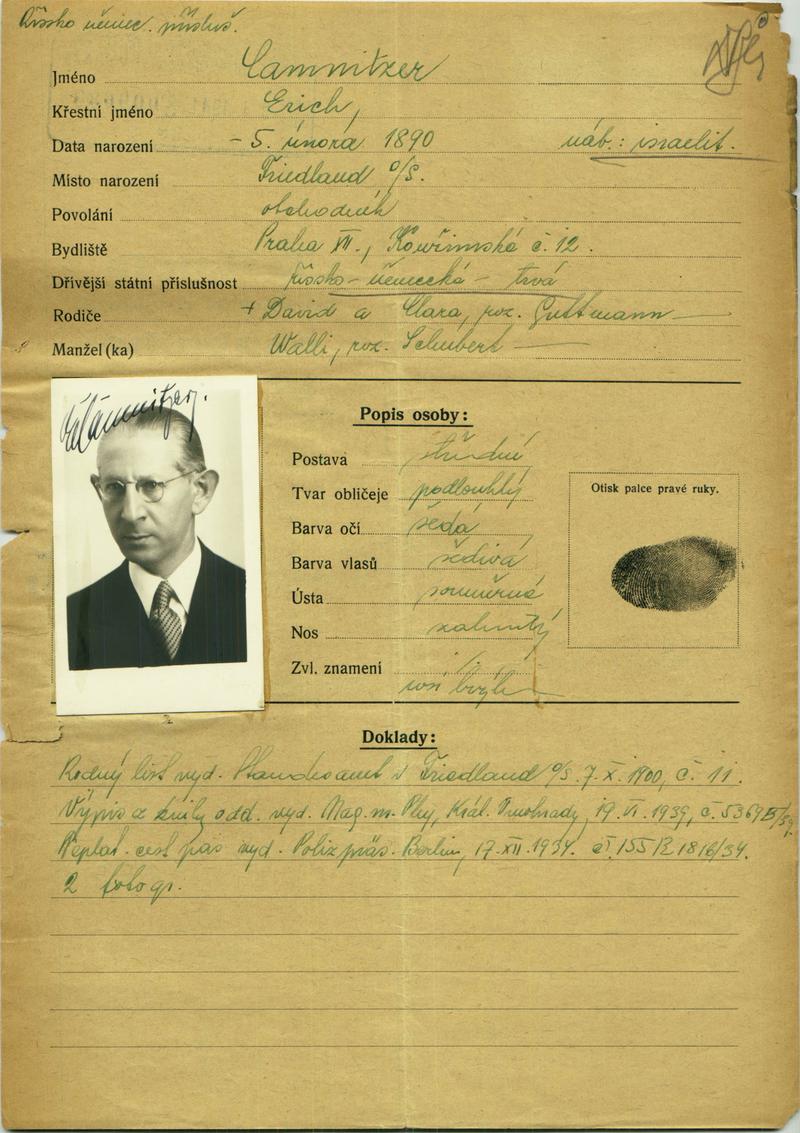 Říšsko němec. přísluš.
Jméno Camnitzer
Křestní jméno Erich,
Data narození - 5. února 1890 náb.: israelit.
Místo narození Friedland o/S.
Povolání obchodník
Bydliště Praha XII., Kouřimská č. 12.
Dřívější státní příslušnost říšsko - německá - trvá
Rodiče + David a Clara, roz. Guttmann
Manžel (ka) Walli, roz. Schubert
Popis osoby:
Postava střední
Tvar obličeje podlouhlý
Barva očí šedá
Barva vlasů šedivá
Ústa souměrná
Nos
Zvl. znamení
nosí brýle
Otisk palce pravé ruky.
Doklady:
Rodný list vyd. Standesamt v Friedland o/S. 7. X. 1900, č. 11.
Výpis z knihy odd. vyd. Mag. m. Král. Vinohrady, 19. VI. 1939, č. 5369
Neplat. cest. pas vyd. Polizpräs. Berlin, 17. XII. 1934. č.
2 fotogr.